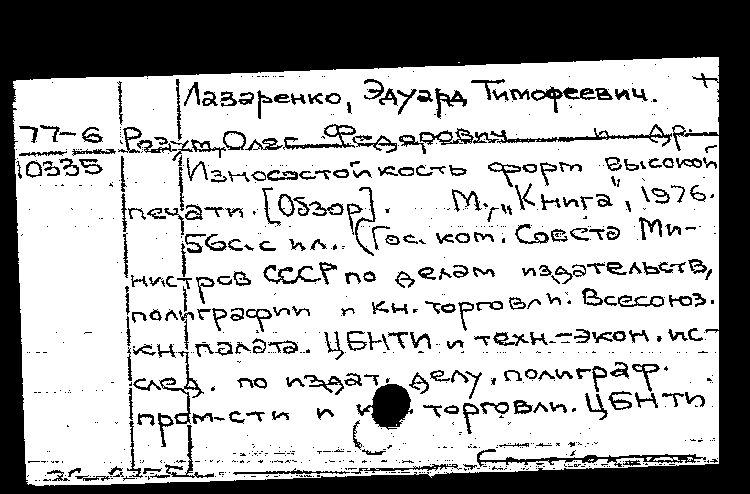 Лазаренко, Эдуард Тимофеевич. +
77-6 Розум, Олег Федорович и др.
10335 Износостойкость форм высокой
печати. [Обзор]. М., „Книга", 1976.
56 с. с ил. (Гос. ком. Совета Ми-
нистров СССР по делам издательств,
полиграфии и кн. торговли. Всесоюз.
кн. палата. ЦБНТИ и техн.-экон. ис-
след. по издат. делу, полиграф.
пром-сти и торговли. ЦБНТИ